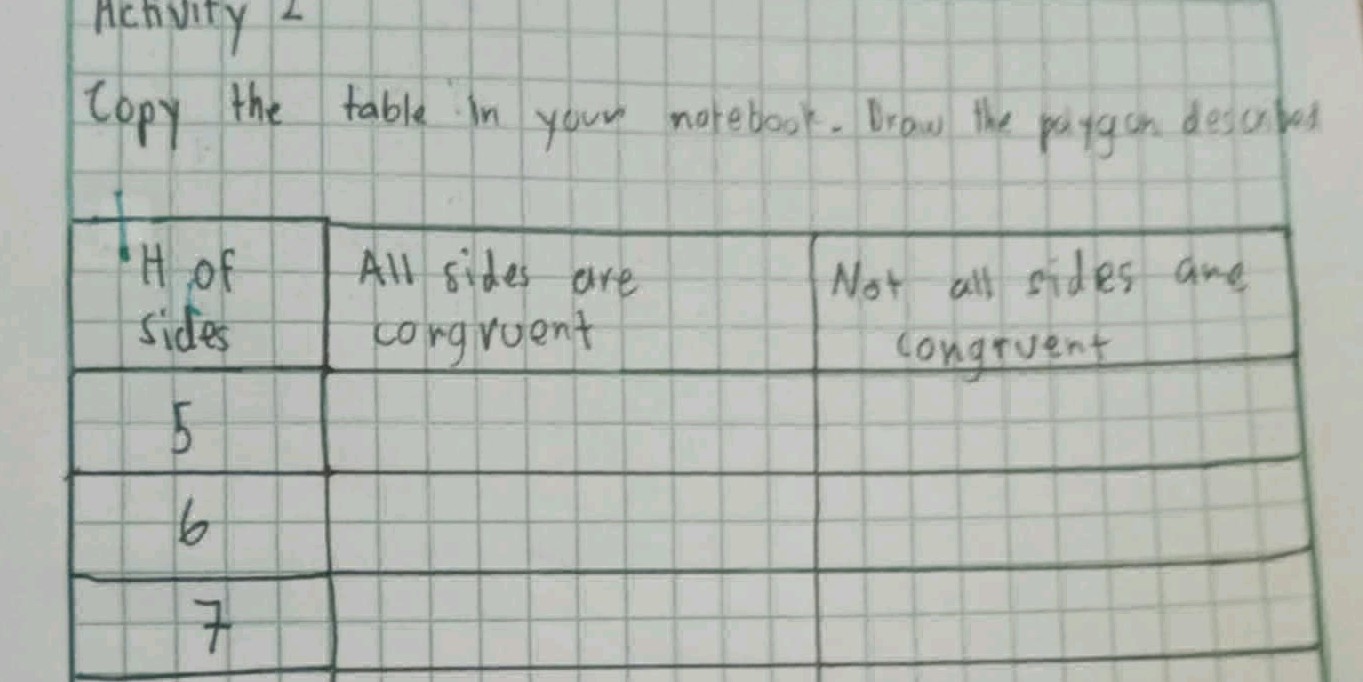 Activity 2
Copy the table in your notebook. Draw the paygon described
H of sides
All sides are corgruent
Not all sides are congruent
5
6
7